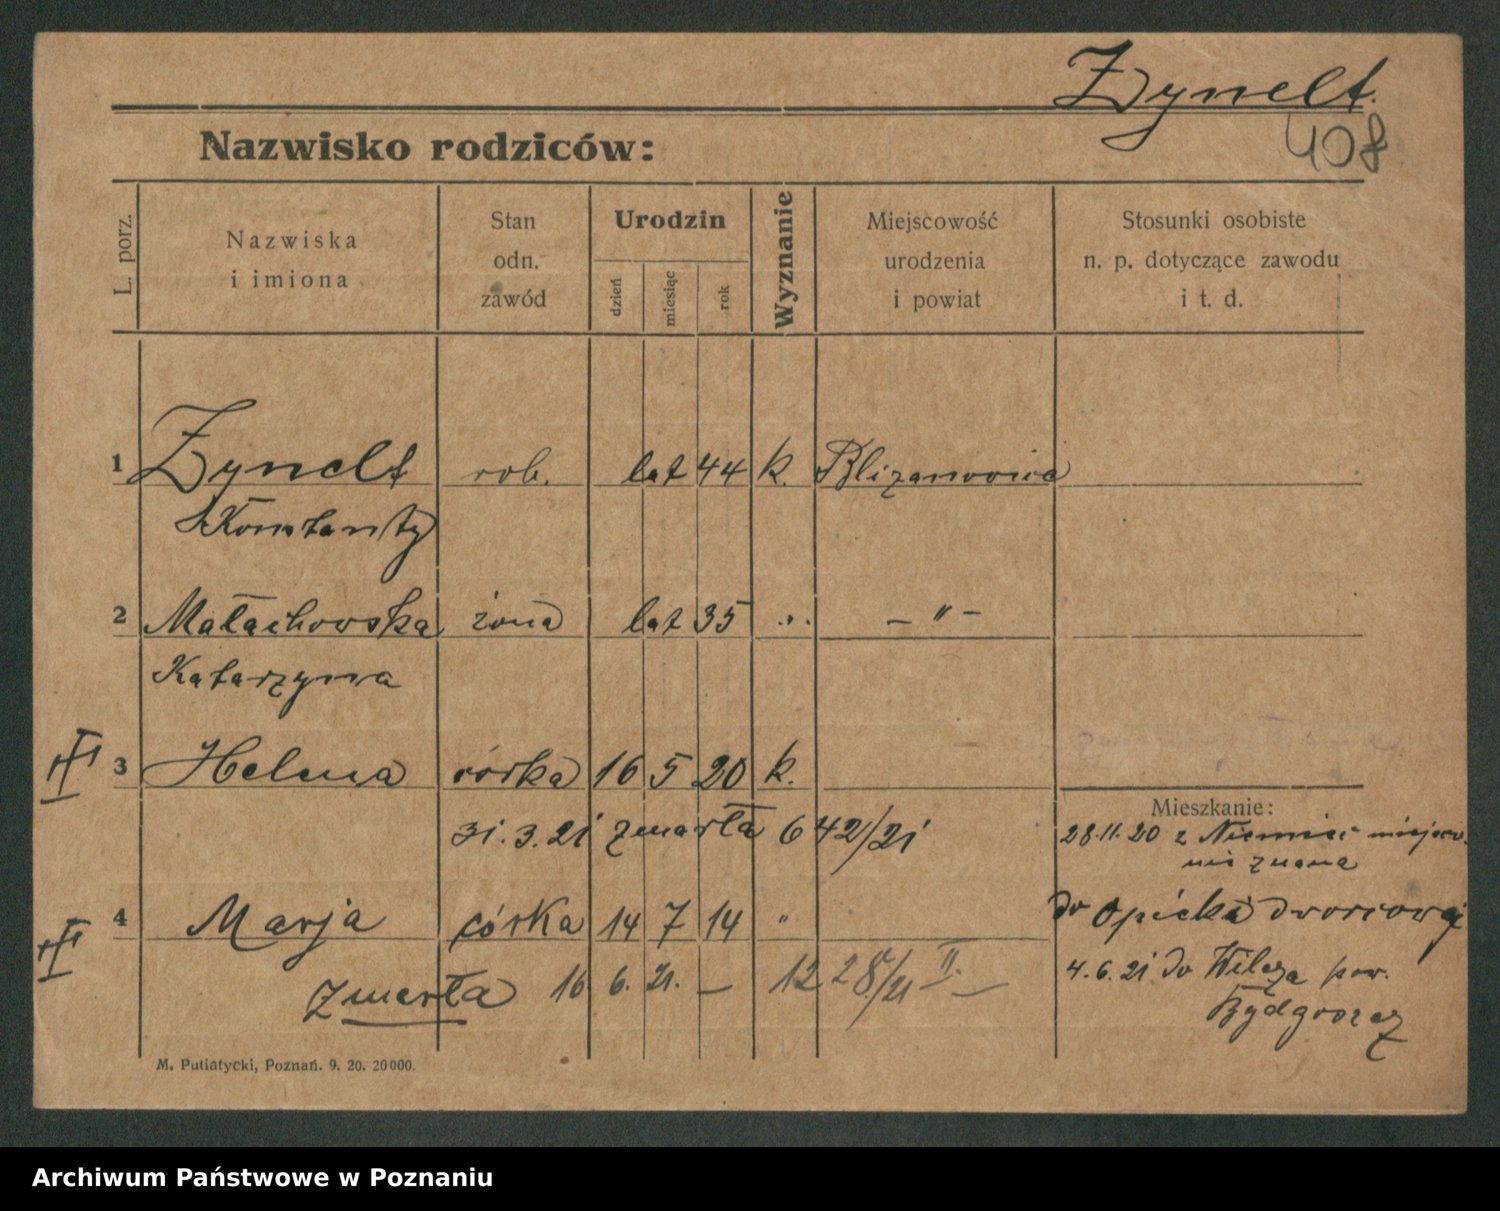 Zynelt.
408
Nazwisko rodziców:
L. porz.
Nazwiska
i imiona
Stan
odn.
zawód
Urodzin
dzień
miesiąc
rok
Wyznanie
Miejscowość
urodzenia
i powiat
Stosunki osobiste
n. p. dotyczące zawodu
i t. d.
1 Zynelt rob. lat 44 k. Blizanowice
Konstanty
2 Małachowska żona lat 35 " — " —
Katarzyna
III 3 Helena córka 16 5 20 k.
Mieszkanie:
31.3.21 zmarła 642/21
28.11.20 z Niemiec miejsco.
nie znana
III 4 Marja córka 14 7 14 "
do Opieka dworcowej
zmarła 16 6. 21. — 12 28/21 II. —
4.6.21 do Wilcza pow.
Bydgoszcz
M. Putiatycki, Poznań. 9. 20. 20000.
Archiwum Państwowe w Poznaniu